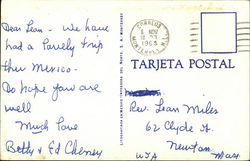 Dear Jean - We have
had a lovely trip
thru MEXICO -
Do hope you are
well
Much love
Betty & Ed Cheney
CORREOS
6 NOV
1963
TARJETA POSTAL
Rev. Jean Miles
62 Clyde St.
Newton
Mass
USA